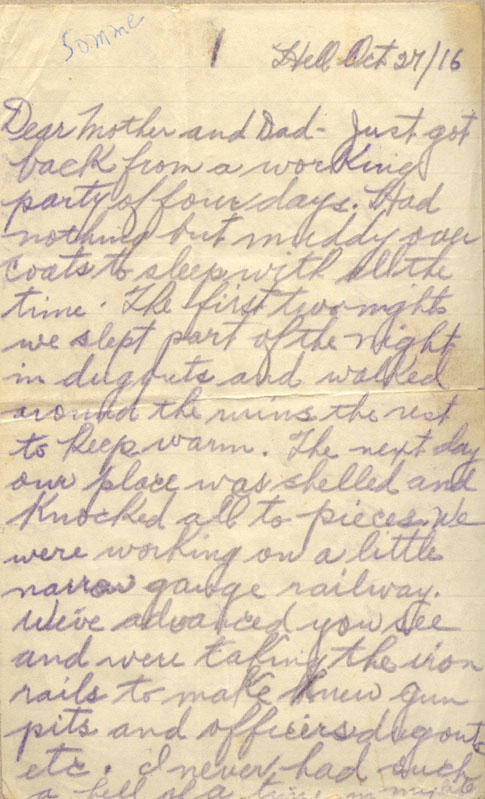 Somme
1
Hell Oct 27/16
Dear Mother and Dad - Just got
back from a working
party of four days. Had
nothing but muddy over
coats to sleep with all the
time. The first two nights
we slept part of the night
in dugouts and walked
around the ruins the rest
to keep warm. The next day
our place was shelled and
knocked all to pieces. We
were working on a little
narrow gauge railway.
We've advanced you see
and were taking the iron
rails to make knew gun
pits and officers dugouts
etc. I never had such
a hell of a time in my life